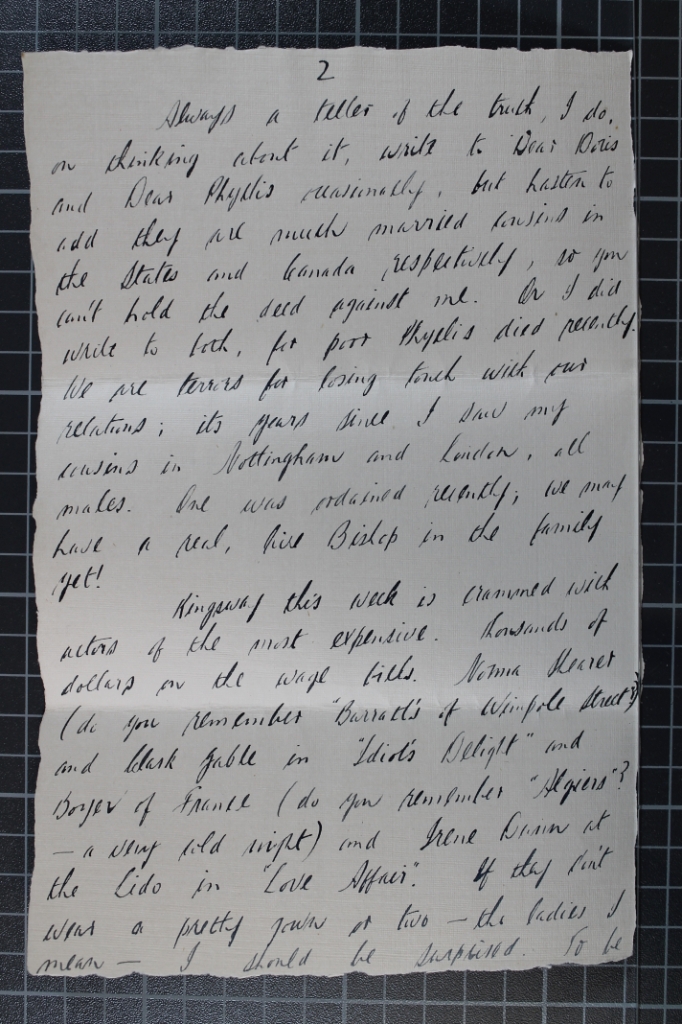 2
Always a teller of the truth, I do,
on thinking about it, write to Dear Doris
and Dear Phyllis occasionally, but hasten to
add they are much married cousins in
the States and Canada respectively, so you
can't hold the deed against me. Or I did
write to both, for poor Phyllis died recently.
We are terrors for losing touch with our
relations; its years since I saw my
cousins in Nottingham and London, all
males. One was ordained recently; we may
have a real, live Bishop in the family
yet!
Kingsway this week is crammed with
actors of the most expensive. Thousands of
dollars on the wage bills. Norma Shearer
(do you remember "Barratt's of Wimpole Street"?)
and Clark Gable in "Idiot's Delight" and
Boyer of France (do you remember "Algiers"?
— a very cold night) and Irene Dunn at
the Lido in "Love Affair". If they don't
wear a pretty gown or two — the ladies I
mean — I should be surprised. To be